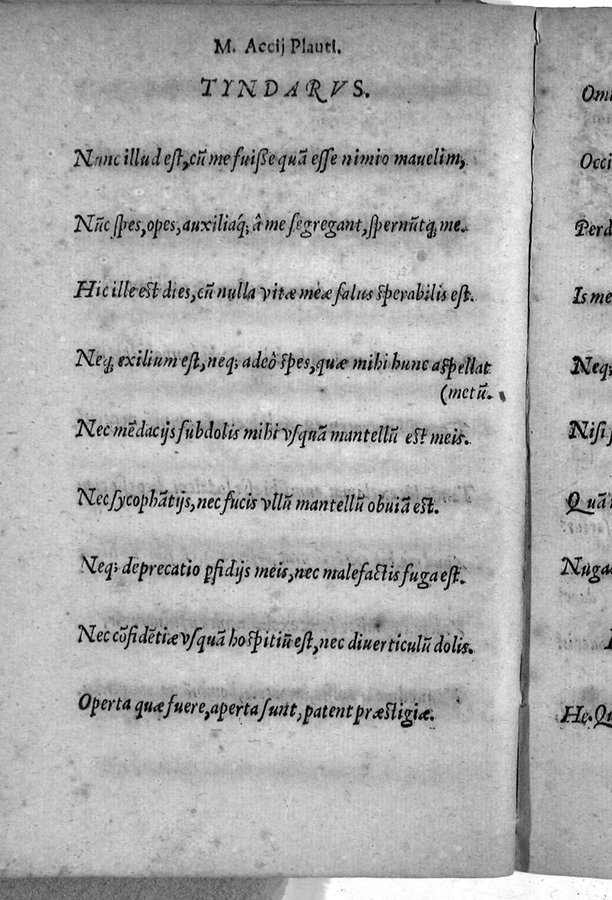 M. Accij Plauti.
TYNDARVS.
Nunc illud est, cũ me fuisse quã esse nimio mauelim,
Nũc spes, opes, auxiliaq́; â me segregant, spernũtq; me.
Hic ille est dies, cũ nulla vitæ meæ salus sperabilis est.
Neq; exilium est, neq; adeò spes, quæ mihi hunc aspellat
(metũ.
Nec mẽdacijs subdolis mihi vsquã mantellũ est meis.
Nec sycophãtijs, nec fucis vllũ mantellũ obuiã est.
Neq; deprecatio ꝑfidijs meis, nec malefactis fuga est.
Nec cõfidẽtiæ vsquã hospitiũ est, nec diuerticulũ dolis.
Operta quæ fuere, aperta sunt, patent præstigiæ.
Occi
Perd
Is me
Neq;
Nisi
Quã
Nuga
He. Qu